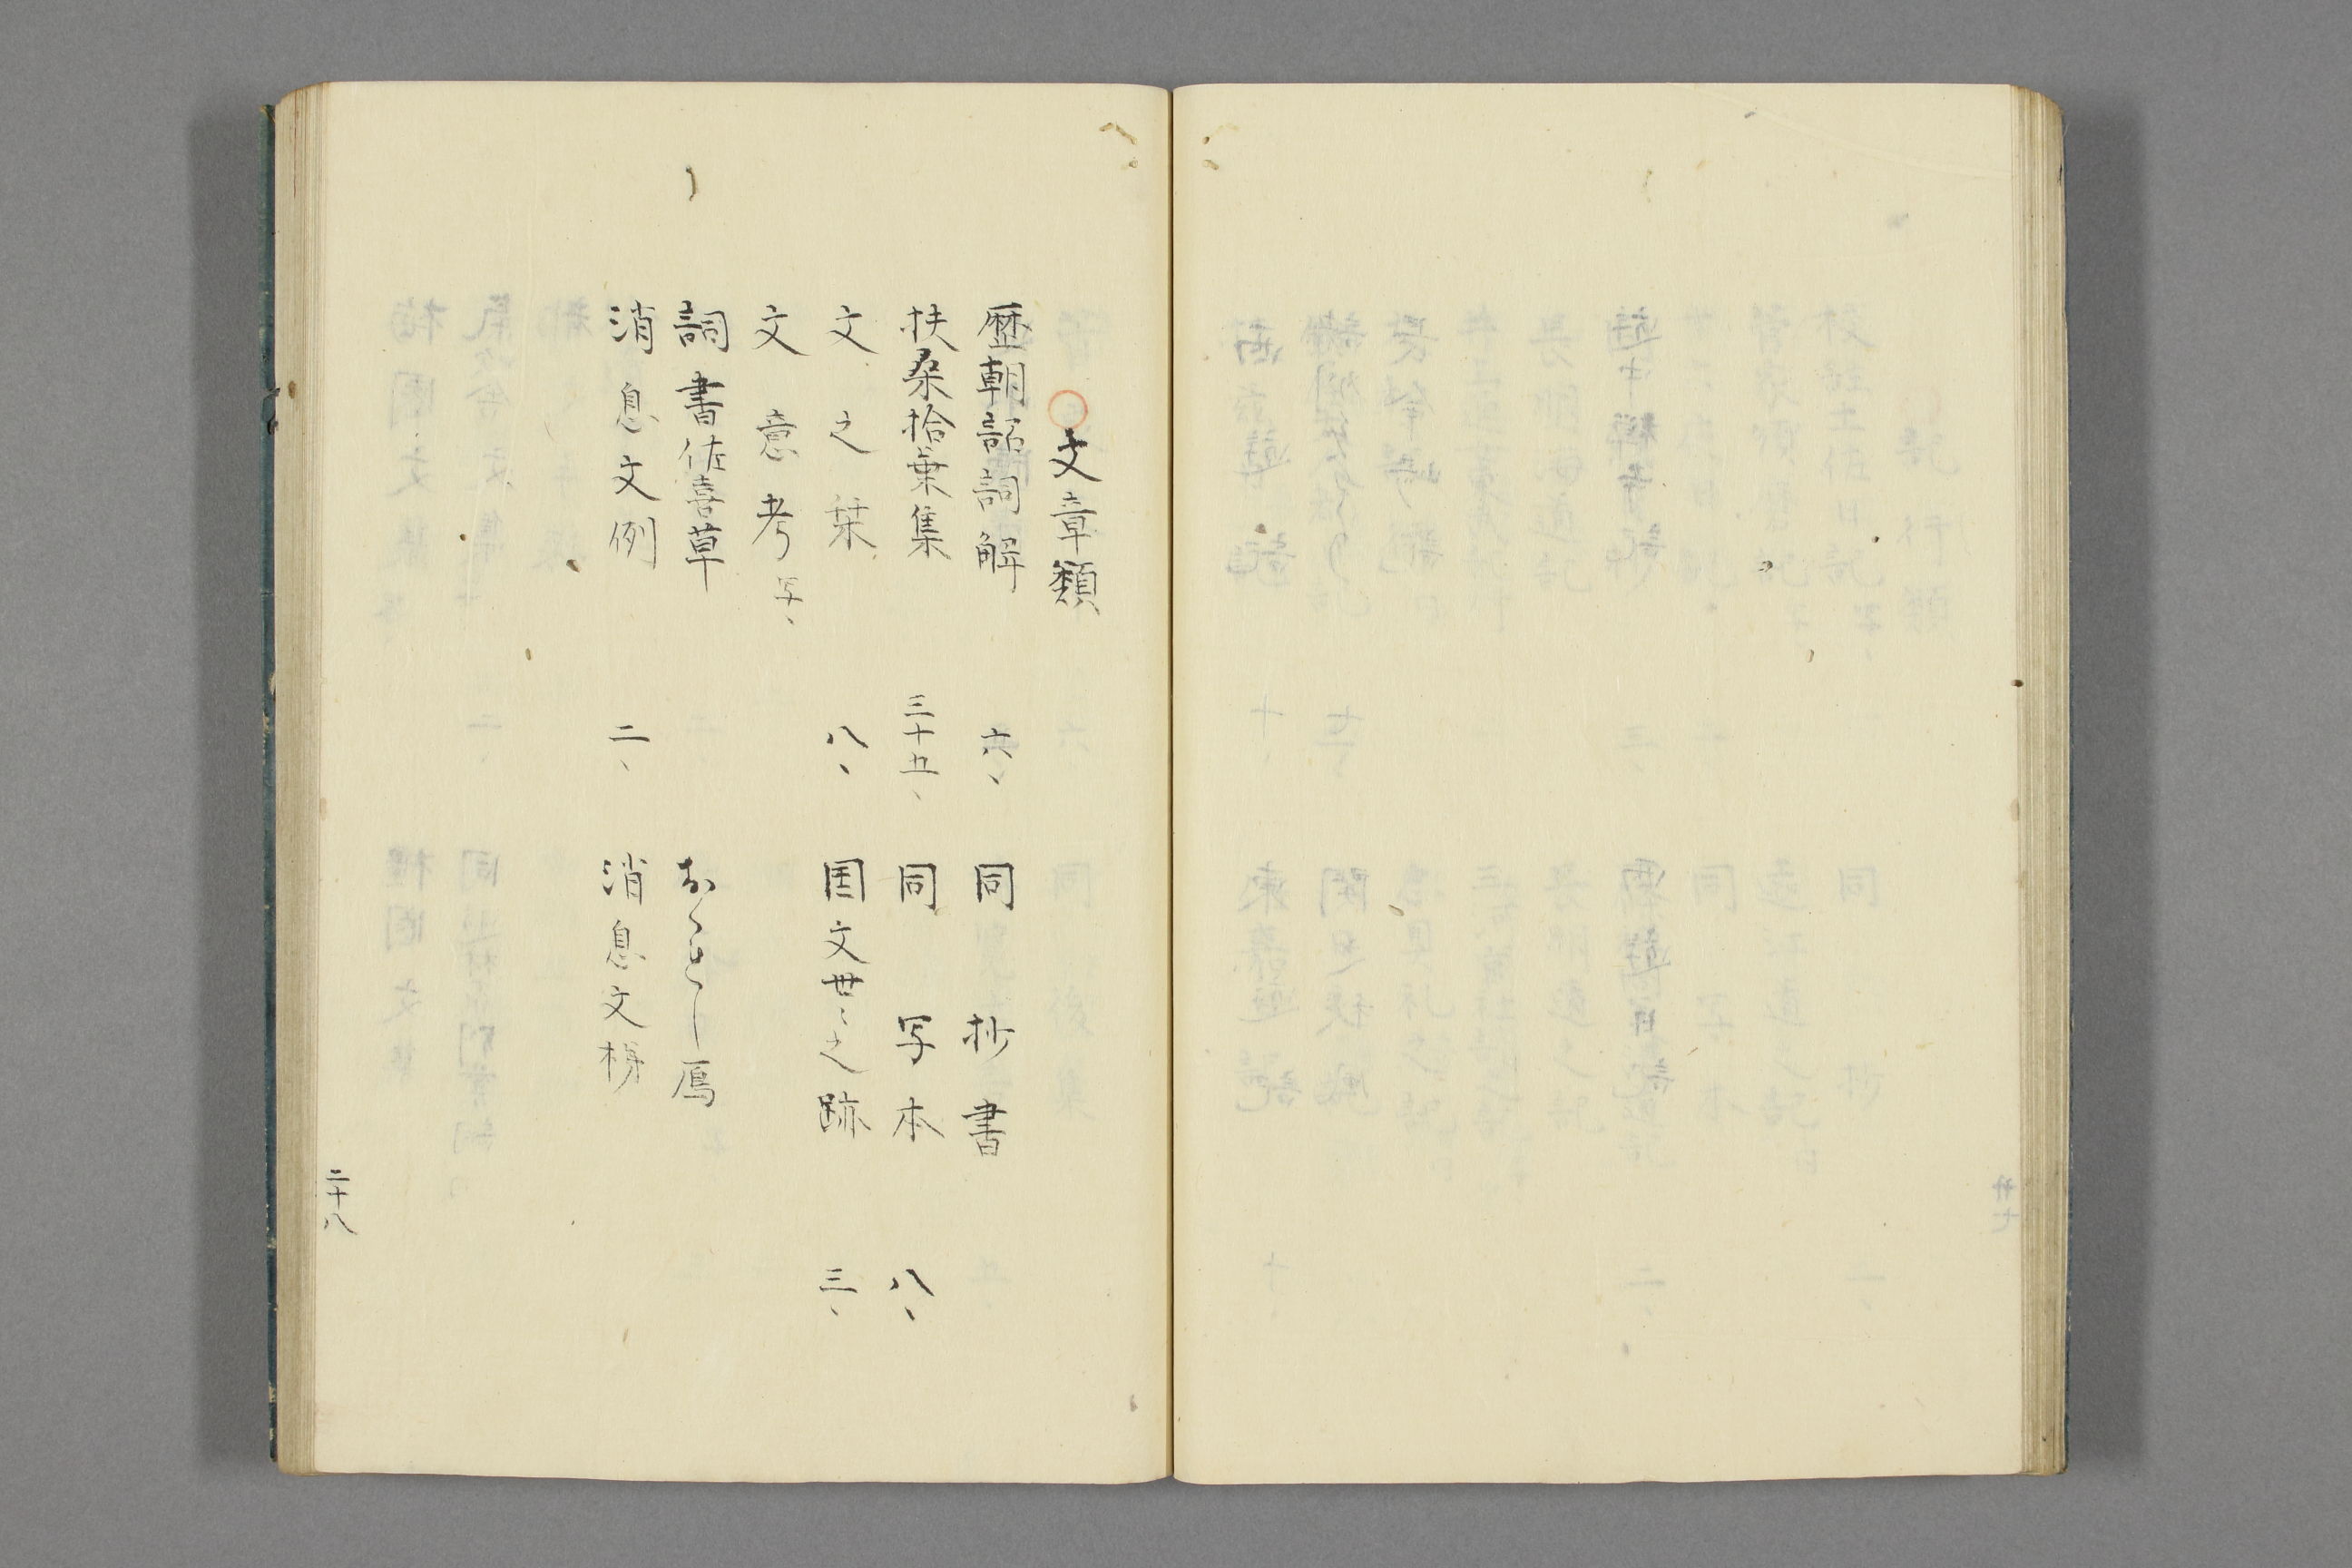 文章類
歴朝詔詞解 六、 同抄書
扶桑拾葉集 三十五、 同写本 八、
文之栞 八、 国文世々之跡 三、
文意考 写、
詞書佐喜草 雁
消息文例 二、 消息文梯
二十八